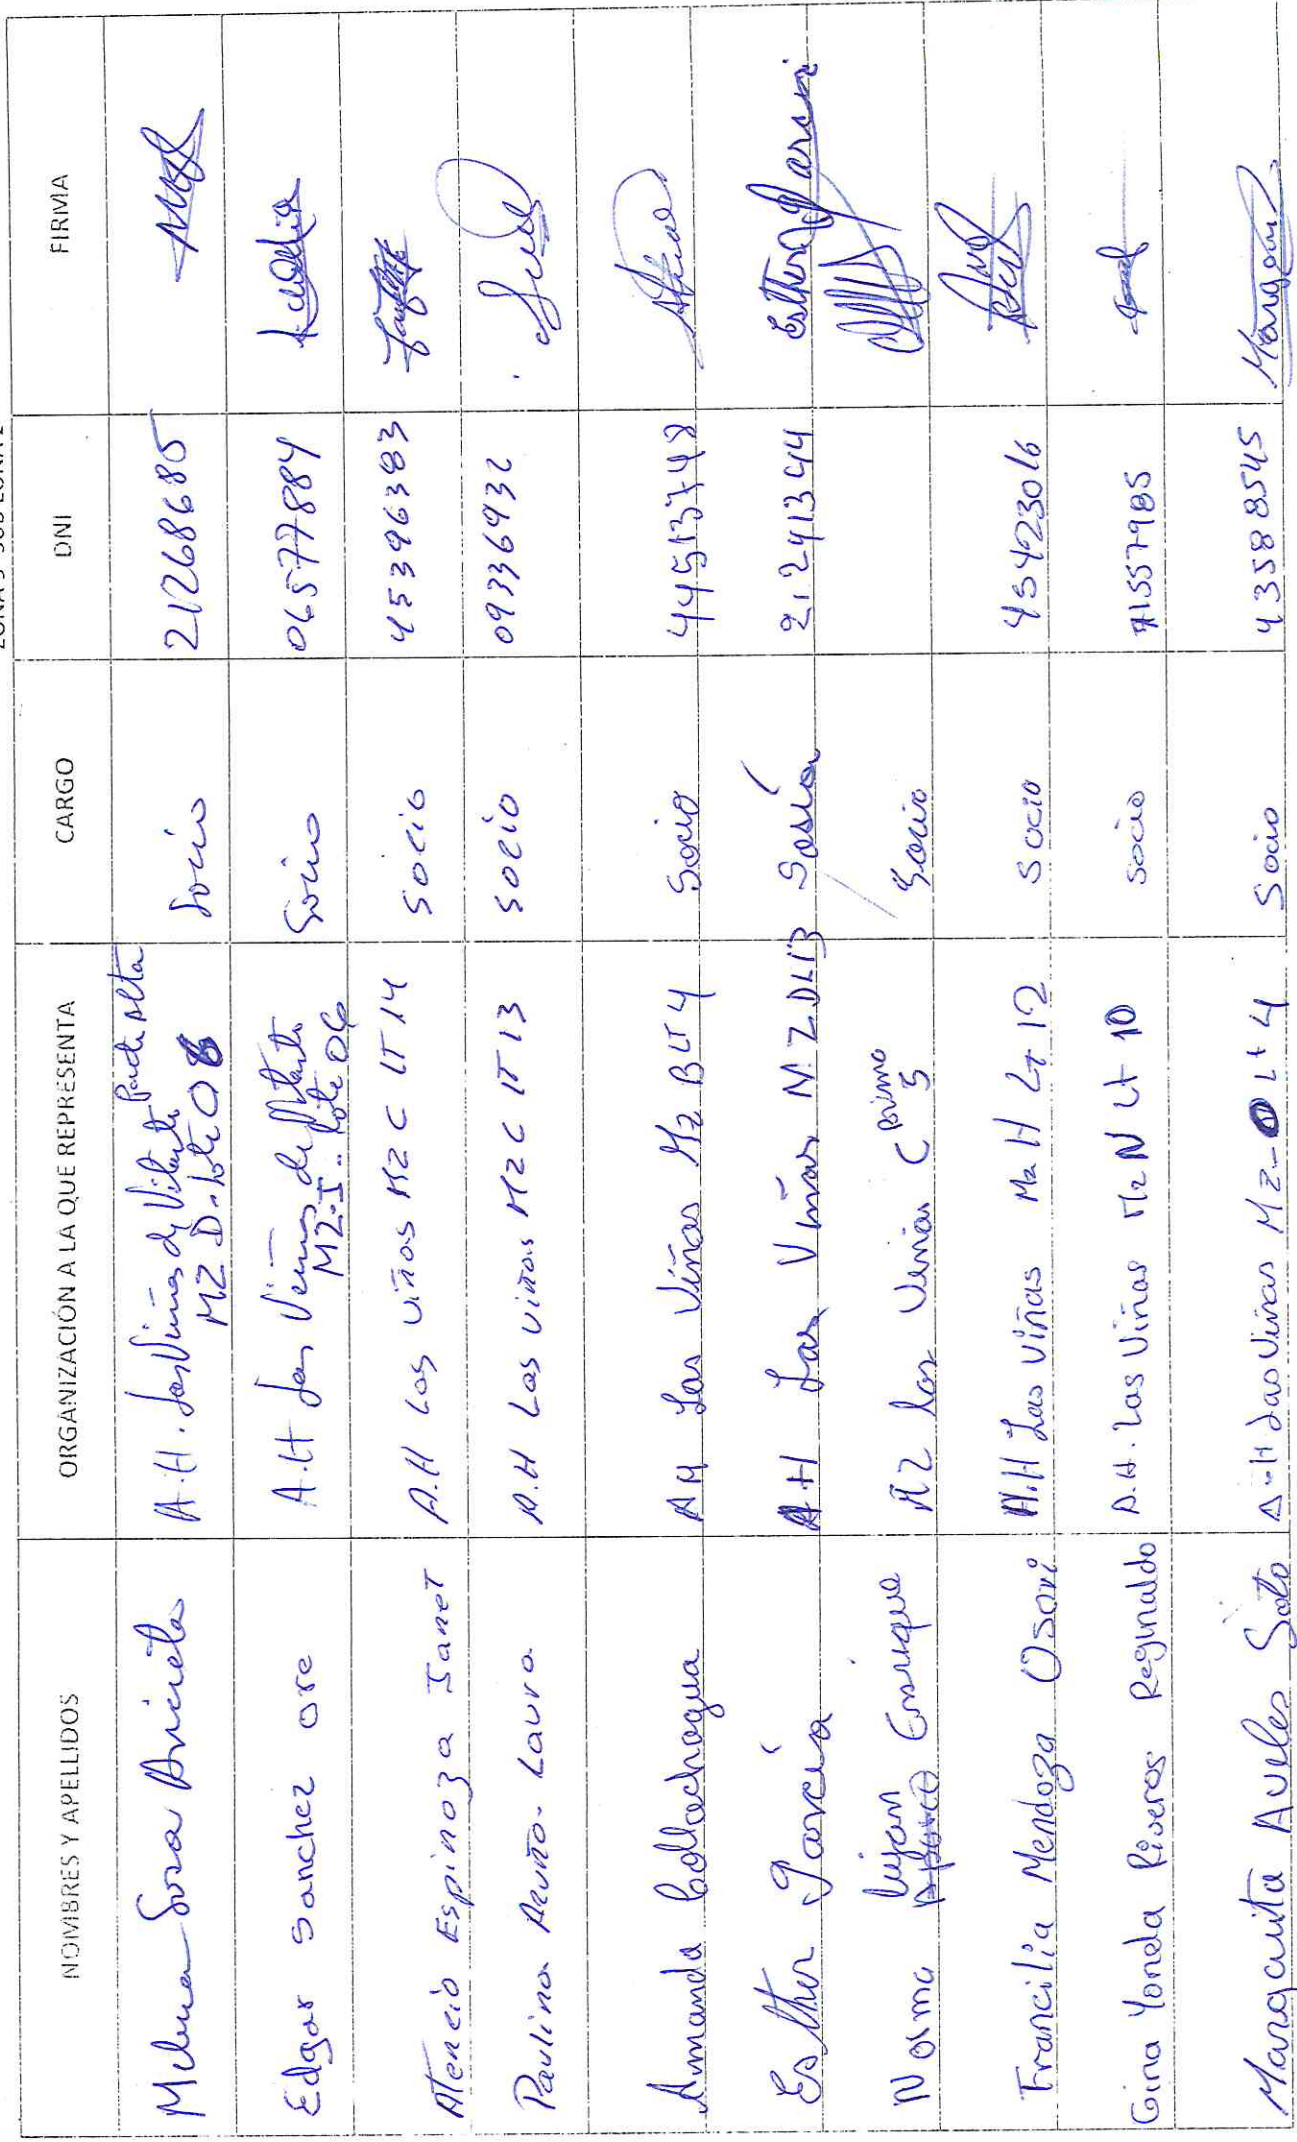 NOMBRES Y APELLIDOS ORGANIZACIÓN A LA QUE REPRESENTA CARGO DNI FIRMA
Sosa Aniceta A.H. Las Viñas de Vitarte Parte Alta Socio 21268685
MZ D. Lote 08
Edgar Sanchez Ore A.H Las Viñas de Vitarte Socio 06577884
MZ: I.. Lote 06
Atencio Espinoza Janet A.H Las Viñas MZ C LT 14 Socio 45396383
Paulina Laura A.H Las Viñas MZ C LT 13 Socio 09336932
Amanda Collachagua AH Las Viñas Mz B LT 4 Socio
Esther García AH Las Viñas MZ D Lt 13 Socia 21241344 Esther Garcia
Norma Lujan Enrique MZ las Viñas C 5 Socio
Francilia Mendoza Osori A.H Las Viñas Mz H Lt 12 Socio 45423016
Gina Yonda Riveros Reginaldo A.H. Las Viñas Mz N Lt 10 Socio 71557985
Margarita Aviles Soto A-H Las Viñas Mz- Lt 4 Socio 43588545